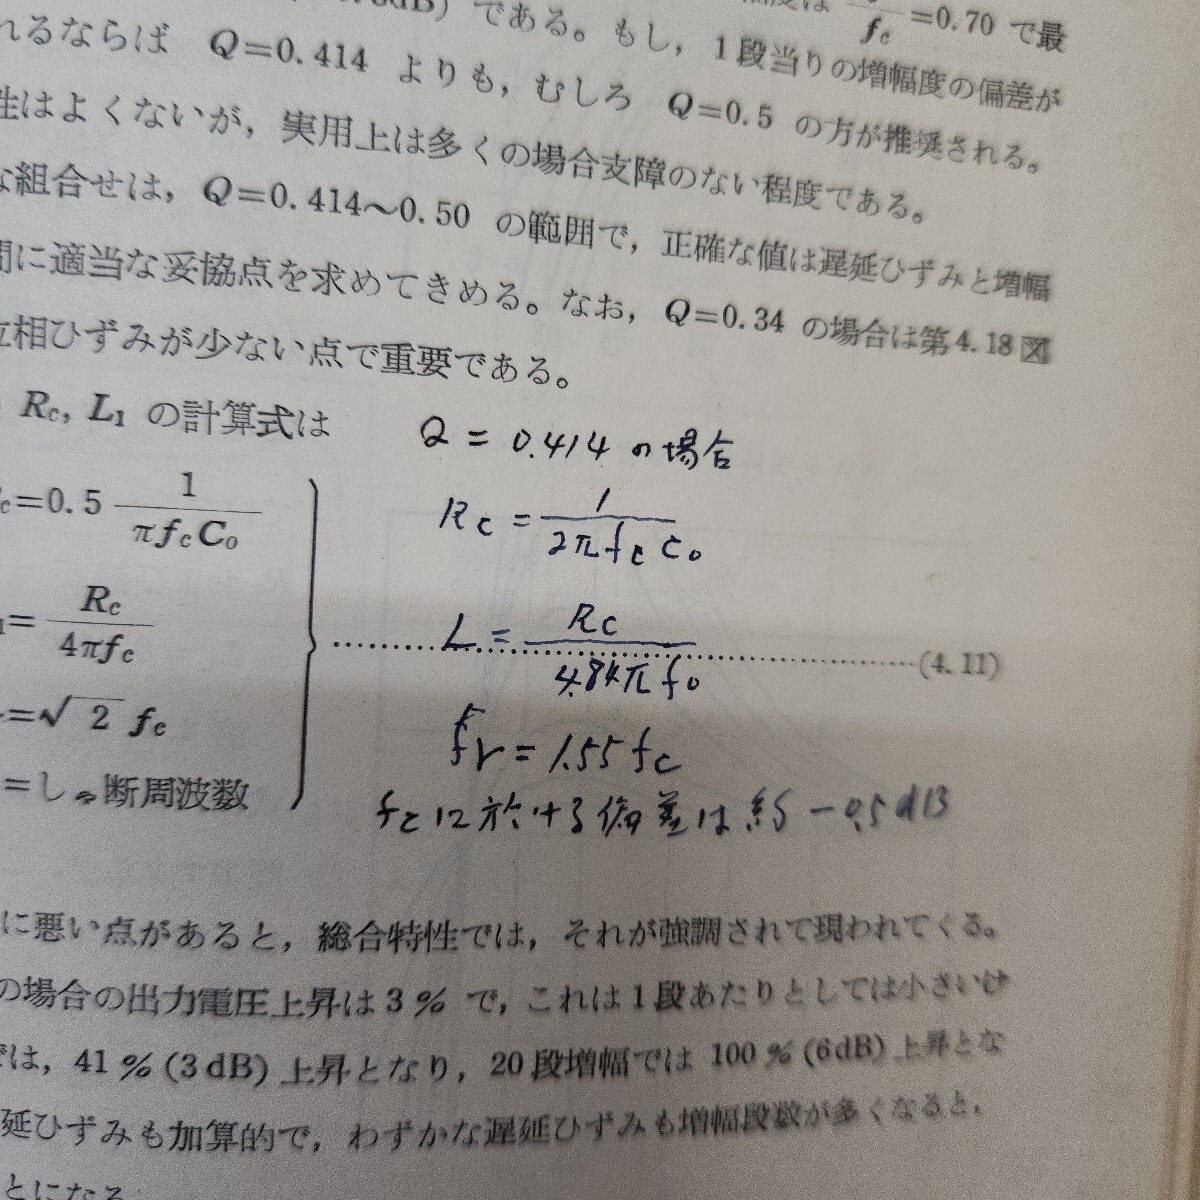 dB) である。もし，1段当りの増幅度の偏差が
fc =0.70 で最
れるならば Q=0.414 よりも，むしろ Q=0.5 の方が推奨される。
性はよくないが，実用上は多くの場合支障のない程度である。
な組合せは，Q=0.414～0.50 の範囲で，正確な値は遅延ひずみと増幅
間に適当な妥協点を求めてきめる。なお，Q=0.34 の場合は第4.18図
位相ひずみが少ない点で重要である。
Rc, L1 の計算式は
Q = 0.414 の場合
c=0.5 1/πfcC0
Rc = 1/2πfcC0
1= Rc/4πfc
L = Rc/4.84πf0
(4.11)
=√2 fc
fr = 1.55fc
=しゃ断周波数
fcに於ける偏差は約 −0.5dB
に悪い点があると，総合特性では，それが強調されて現われてくる。
の場合の出力電圧上昇は3% で，これは1段あたりとしては小さいけ
では，41%(3dB)上昇となり，20段増幅では 100%(6dB)上昇とな
延ひずみも加算的で，わずかな遅延ひずみも増幅段数が多くなると，
とになる